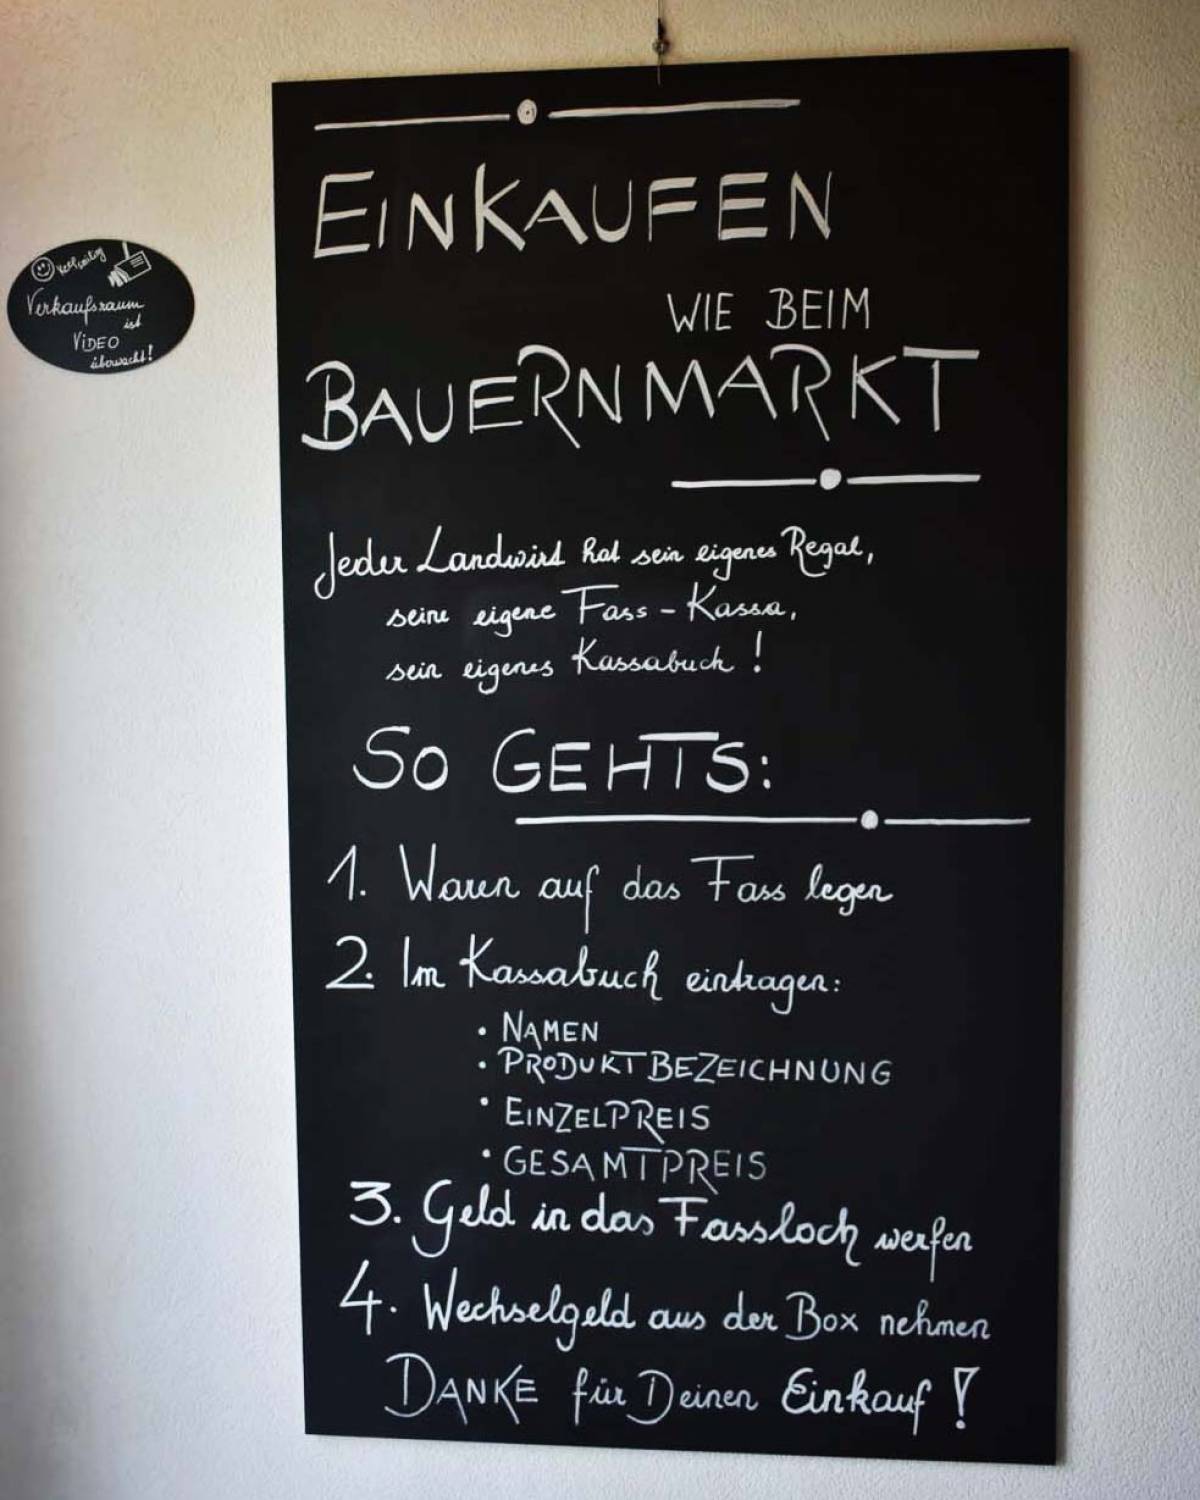 EINKAUFEN
WIE BEIM
BAUERNMARKT
Jeder Landwirt hat sein eigenes Regal,
seine eigene Fass-Kassa,
sein eigenes Kassabuch!
SO GEHTS:
1. Waren auf das Fass legen
2. Im Kassabuch eintragen:
• NAMEN
• PRODUKTBEZEICHNUNG
• EINZELPREIS
• GESAMTPREIS
3. Geld in das Fassloch werfen
4. Wechselgeld aus der Box nehmen
DANKE für Deinen Einkauf!
Verkaufsraum
ist
VIDEO
überwacht!